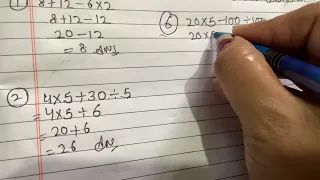 ① 8+12-6×2
8+12-12
20-12
= 8 Ans
② 4×5+30÷5
= 4×5+6
= 20+6
= 26 Ans
⑥ 20×5-100÷100
20×